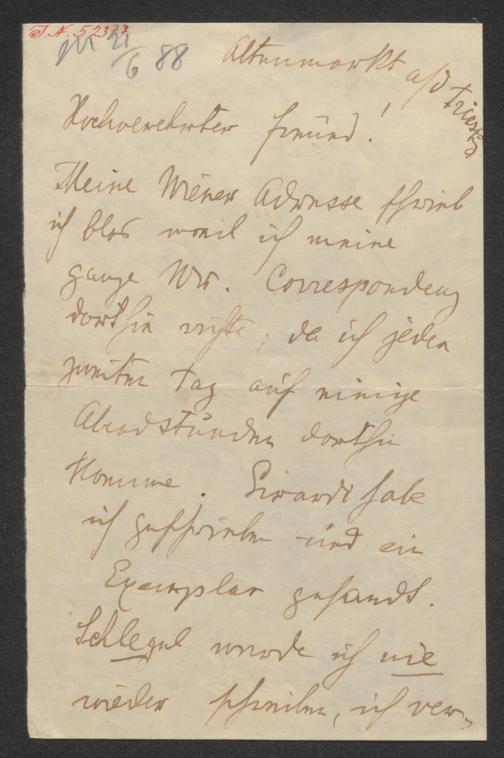 J. N. 52377
21/6 88
Altenmarkt a/d Triest
Hochverehrter Freund!
Meine Wiener Adresse schrieb
ich blos weil ich meine
ganze Wr. Correspondenz
dorthin richte, da ich jeden
zweiten Tag auf einige
Abendstunden dorthin
komme. Girardi habe
ich geschrieben und ein
Exemplar gesandt.
Schlegel werde ich nie
wieder schreiben, ich ver-